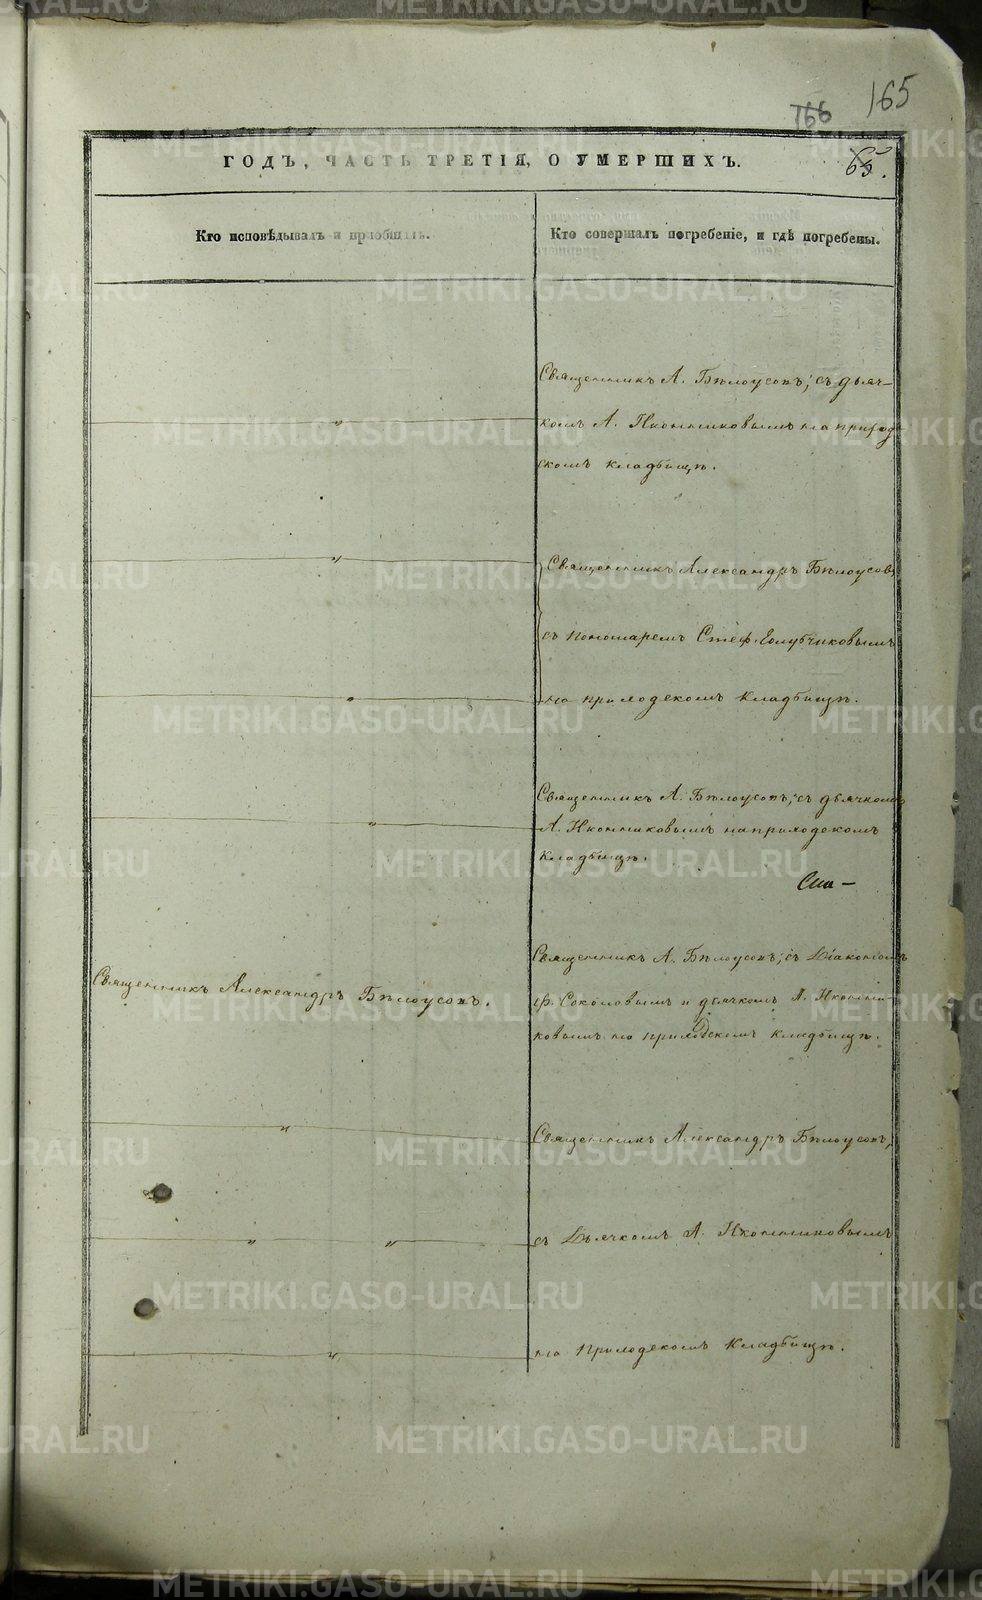 165
166
ГОДЪ, ЧАСТЬ ТРЕТІЯ, О УМЕРШИХЪ.
65.
Кто исповѣдывалъ и пріобщалъ.
Кто совершалъ погребеніе, и гдѣ погребены.
Священникъ А. Бѣлоусовъ; съ дьяч-
комъ А. Иконниковымъ на приход-
скомъ кладбищѣ.
Священникъ Александръ Бѣлоусовъ
съ пономаремъ Стеф. Голубчиковымъ
на приходскомъ кладбищѣ.
Священникъ А. Бѣлоусовъ, съ дьячкомъ
А. Иконниковымъ на приходскомъ
кладбищѣ.
Священникъ Александръ Бѣлоусовъ.
Священникъ А. Бѣлоусовъ; съ Діакономъ
Ф. Соколовымъ и дьячкомъ А. Иконни-
ковымъ на приходскомъ кладбищѣ.
Священникъ Александръ Бѣлоусовъ,
съ Дьячкомъ А. Иконниковымъ
на приходскомъ кладбищѣ.
METRIKI.GASO-URAL.RU